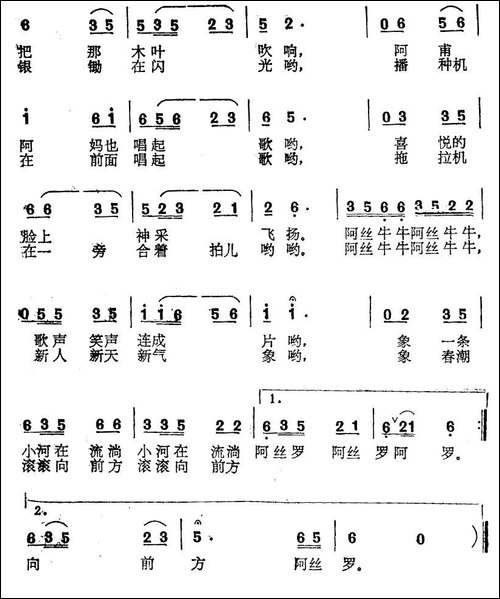 6 3 5 | 5 3 5 2 3 | 5 2 . | 0 6 5 6 |
把 那 木叶 吹响， 阿 甫
银 锄 在闪 光哟， 播 种机
i 6 i | 6 5 6 2 3 | 6 5 . | 0 3 3 5 |
阿 妈也 唱起 歌哟， 喜 悦的
在 前面 唱起 歌哟， 拖 拉机
6 6 3 5 | 5 2 3 2 1 | 2 6 . | 3 5 6 6 3 5 2 2 |
脸上 神采 飞扬。 阿丝牛牛阿丝牛牛，
在一 旁 合着 拍儿 哟哟。 阿丝牛牛阿丝牛牛，
0 5 5 3 5 | i i 6 5 6 | i i . | 0 2 3 5 |
歌声 笑声 连成 片哟， 象 一条
新人 新天 新气 象哟， 象 春潮
1.
6 3 5 6 6 | 3 3 5 2 2 | 6 3 5 2 1 | 6 2 1 6 :||
小河在 流淌 小河在 流淌 阿丝罗 阿丝 罗阿 罗。
滚滚向 前方 滚滚向 前方
2.
6 3 5 2 3 | 5 . 6 5 | 6 0 ||
向 前 方 阿丝 罗。